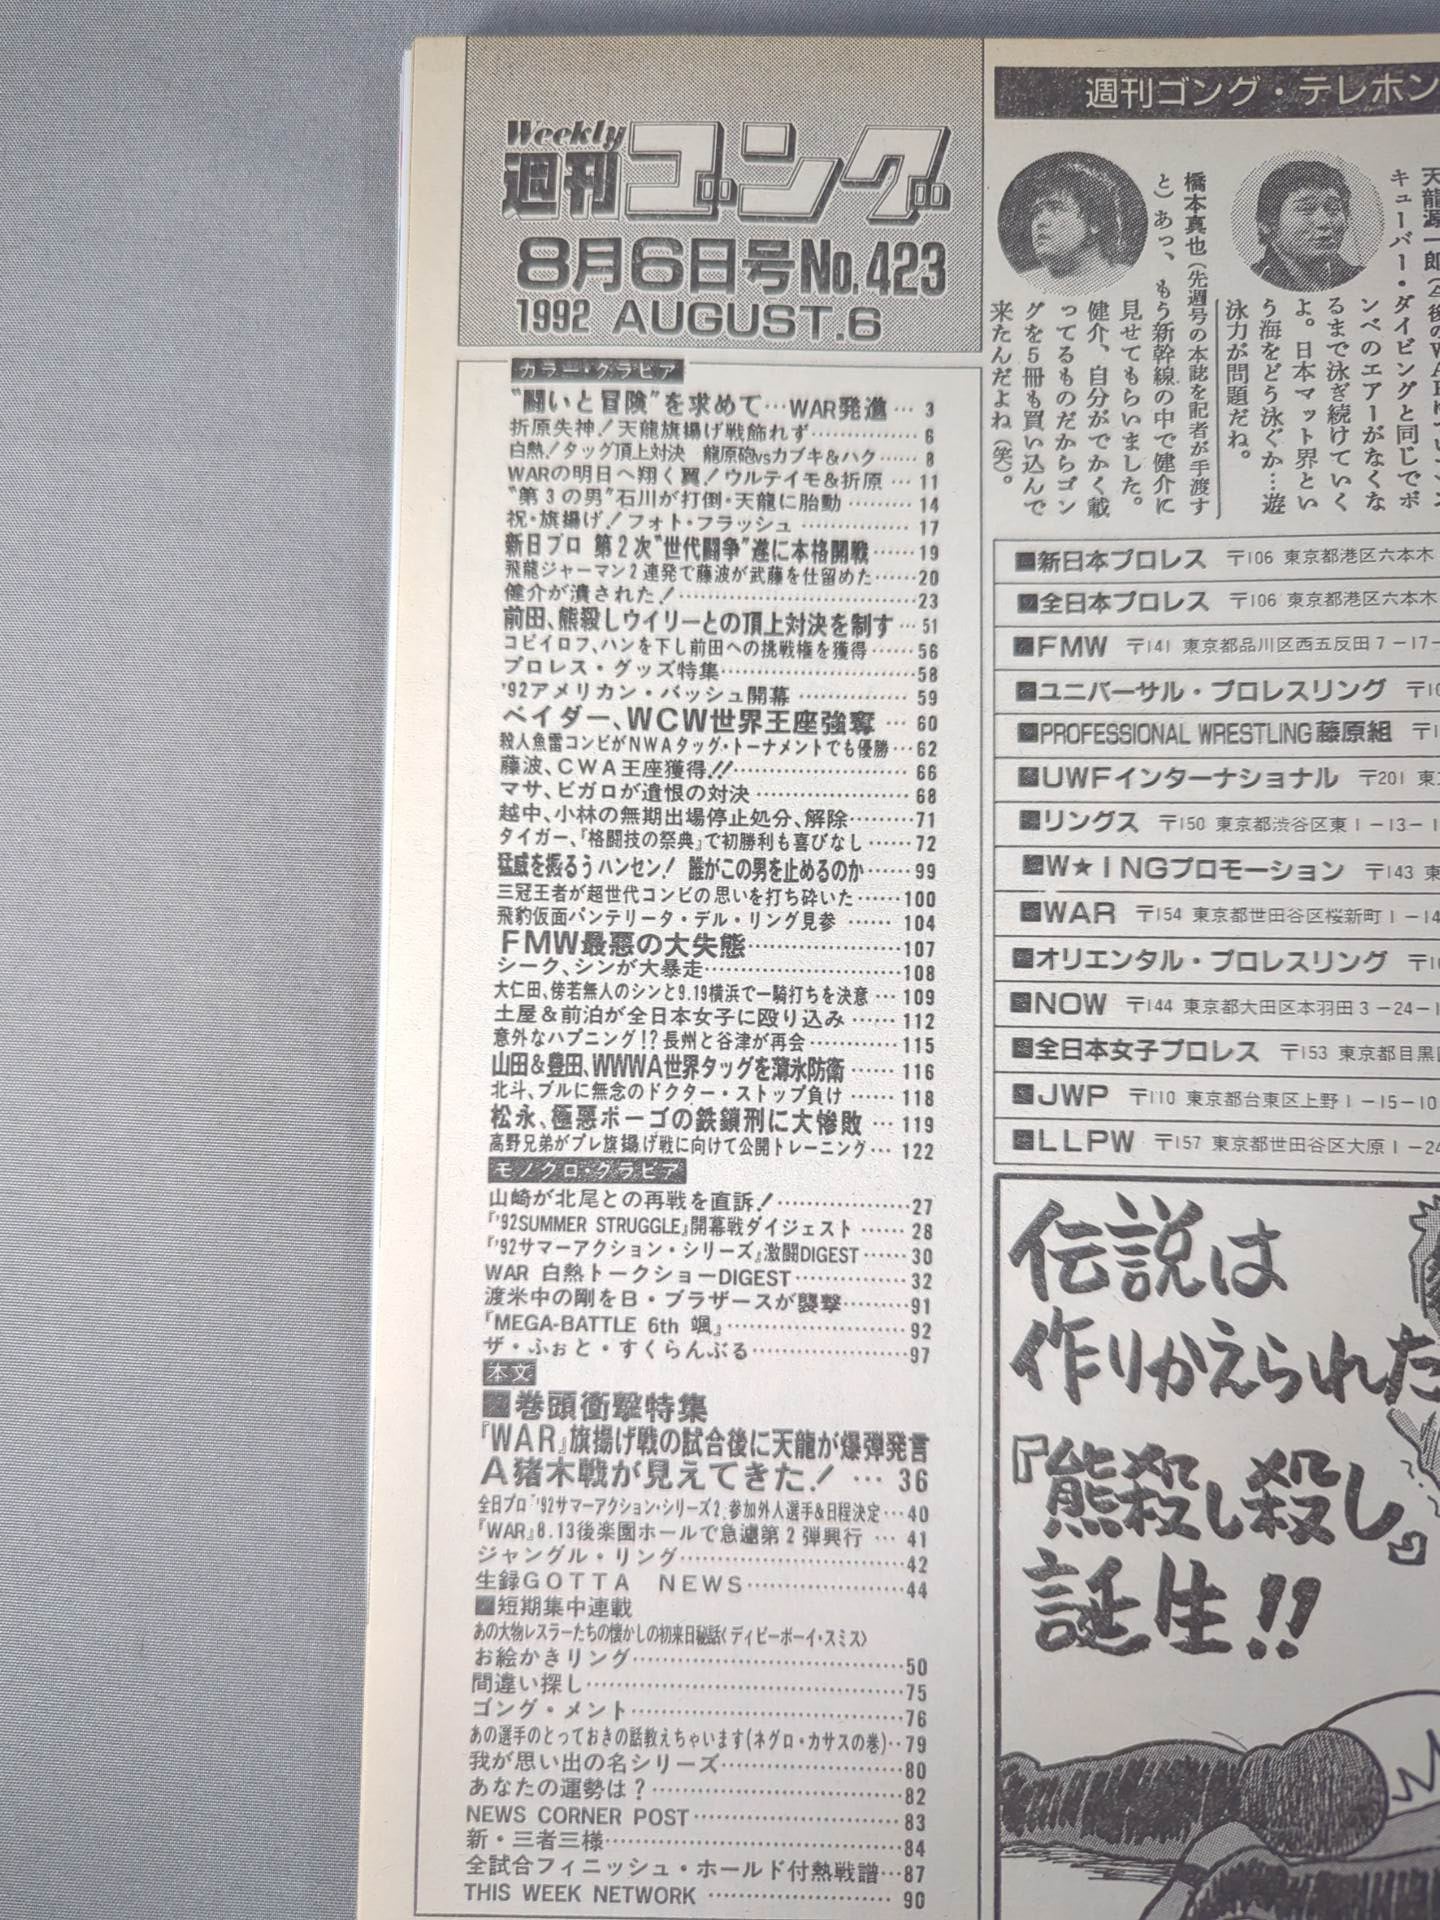 Weekly
週刊ゴング
8月6日号No.423
1992 AUGUST.6
カラー・グラビア
"闘いと冒険"を求めて…WAR発進… 3
折原失神!天龍旗揚げ戦飾れず…………… 6
白熱!タッグ頂上対決 龍原砲vsカブキ&ハク…… 8
WARの明日へ翔く翼!ウルティモ&折原… 11
"第3の男"石川が打倒・天龍に胎動……… 14
祝・旗揚げ!フォト・フラッシュ…………… 17
新日プロ 第2次"世代闘争"遂に本格開戦……19
飛龍ジャーマン2連発で藤波が武藤を仕留めた……20
健介が潰された!……………………………23
前田、熊殺しウイリーとの頂上対決を制す…51
コピイロフ、ハンを下し前田への挑戦権を獲得……56
プロレス・グッズ特集………………………58
'92アメリカン・バッシュ開幕……………59
ベイダー、WCW世界王座強奪…60
殺人魚雷コンビがNWAタッグ・トーナメントでも優勝…62
藤波、CWA王座獲得!!……………………66
マサ、ビガロが遺恨の対決…………………68
越中、小林の無期出場停止処分、解除………71
タイガー、『格闘技の祭典』で初勝利も喜びなし……72
猛威を振るうハンセン! 誰がこの男を止めるのか……99
三冠王者が超世代コンビの思いを打ち砕いた……100
飛豹仮面パンテリータ・デル・リング見参……104
FMW最悪の大失態…………………107
シーク、シンが大暴走………………………108
大仁田、傍若無人のシンと9.19横浜で一騎打ちを決意…109
土屋&前泊が全日本女子に殴り込み……112
意外なハプニング!?長州と谷津が再会…………115
山田&豊田、WWWA世界タッグを薄氷防衛……116
北斗、ブルに無念のドクター・ストップ負け……118
松永、極悪ボーゴの鉄鎖刑に大惨敗…119
高野兄弟がプレ旗揚げ戦に向けて公開トレーニング…122
モノクロ・グラビア
山崎が北尾との再戦を直訴!………………27
『'92SUMMER STRUGGLE』開幕戦ダイジェスト……28
『'92サマーアクション・シリーズ』激闘DIGEST……30
WAR 白熱トークショーDIGEST……………32
渡米中の剛をB・ブラザースが襲撃………91
『MEGA-BATTLE 6th 颯』……………………92
ザ・ふぉと・すくらんぶる…………………97
本文
■巻頭衝撃特集
『WAR』旗揚げ戦の試合後に天龍が爆弾発言
A猪木戦が見えてきた!…36
全日プロ'92サマーアクション・シリーズ2、参加外人選手&日程決定…40
『WAR』8.13後楽園ホールで急遽第2弾興行…41
ジャングル・リング…………………………42
生録GOTTA NEWS…………………44
■短期集中連載
あの大物レスラーたちの懐かしの初来日秘話〈ディビーボーイ・スミス〉
お絵かきリング………………………………50
間違い探し……………………………………75
ゴング・メント………………………………76
あの選手のとっておきの話教えちゃいます(ネグロ・カサスの巻)…79
我が思い出の名シリーズ……………………80
あなたの運勢は?……………………………82
NEWS CORNER POST………………………83
新・三者三様…………………………………84
全試合フィニッシュ・ホールド付熱戦譜…87
THIS WEEK NETWORK……………………90
週刊ゴング・テレホン
天龍源一郎
キューバー・ダイビングと同じでボ
ンベのエアーがなくな
るまで泳ぎ続けていく
よ。日本マット界とい
う海をどう泳ぐか…遊
泳力が問題だね。
橋本真也(先週号の本誌を記者が手渡す
と)あっ、もう新幹線の中で健介に
見せてもらいました。
健介、自分がでかく載
ってるものだからゴン
グを5冊も買い込んで
来たんだよね(笑)。
■新日本プロレス 〒106 東京都港区六本木
■全日本プロレス 〒106 東京都港区六本木
■FMW 〒141 東京都品川区西五反田7-17-
■ユニバーサル・プロレスリング 〒10
■PROFESSIONAL WRESTLING藤原組 〒1
■UWFインターナショナル 〒201 東
■リングス 〒150 東京都渋谷区東1-13-1
■W★INGプロモーション 〒143 東
■WAR 〒154 東京都世田谷区桜新町1-14
■オリエンタル・プロレスリング 〒1
■NOW 〒144 東京都大田区本羽田3-24-1
■全日本女子プロレス 〒153 東京都目黒区
■JWP 〒110 東京都台東区上野1-15-10
■LLPW 〒157 東京都世田谷区大原1-24
伝説は
作りかえられた
『熊殺し殺し』
誕生!!